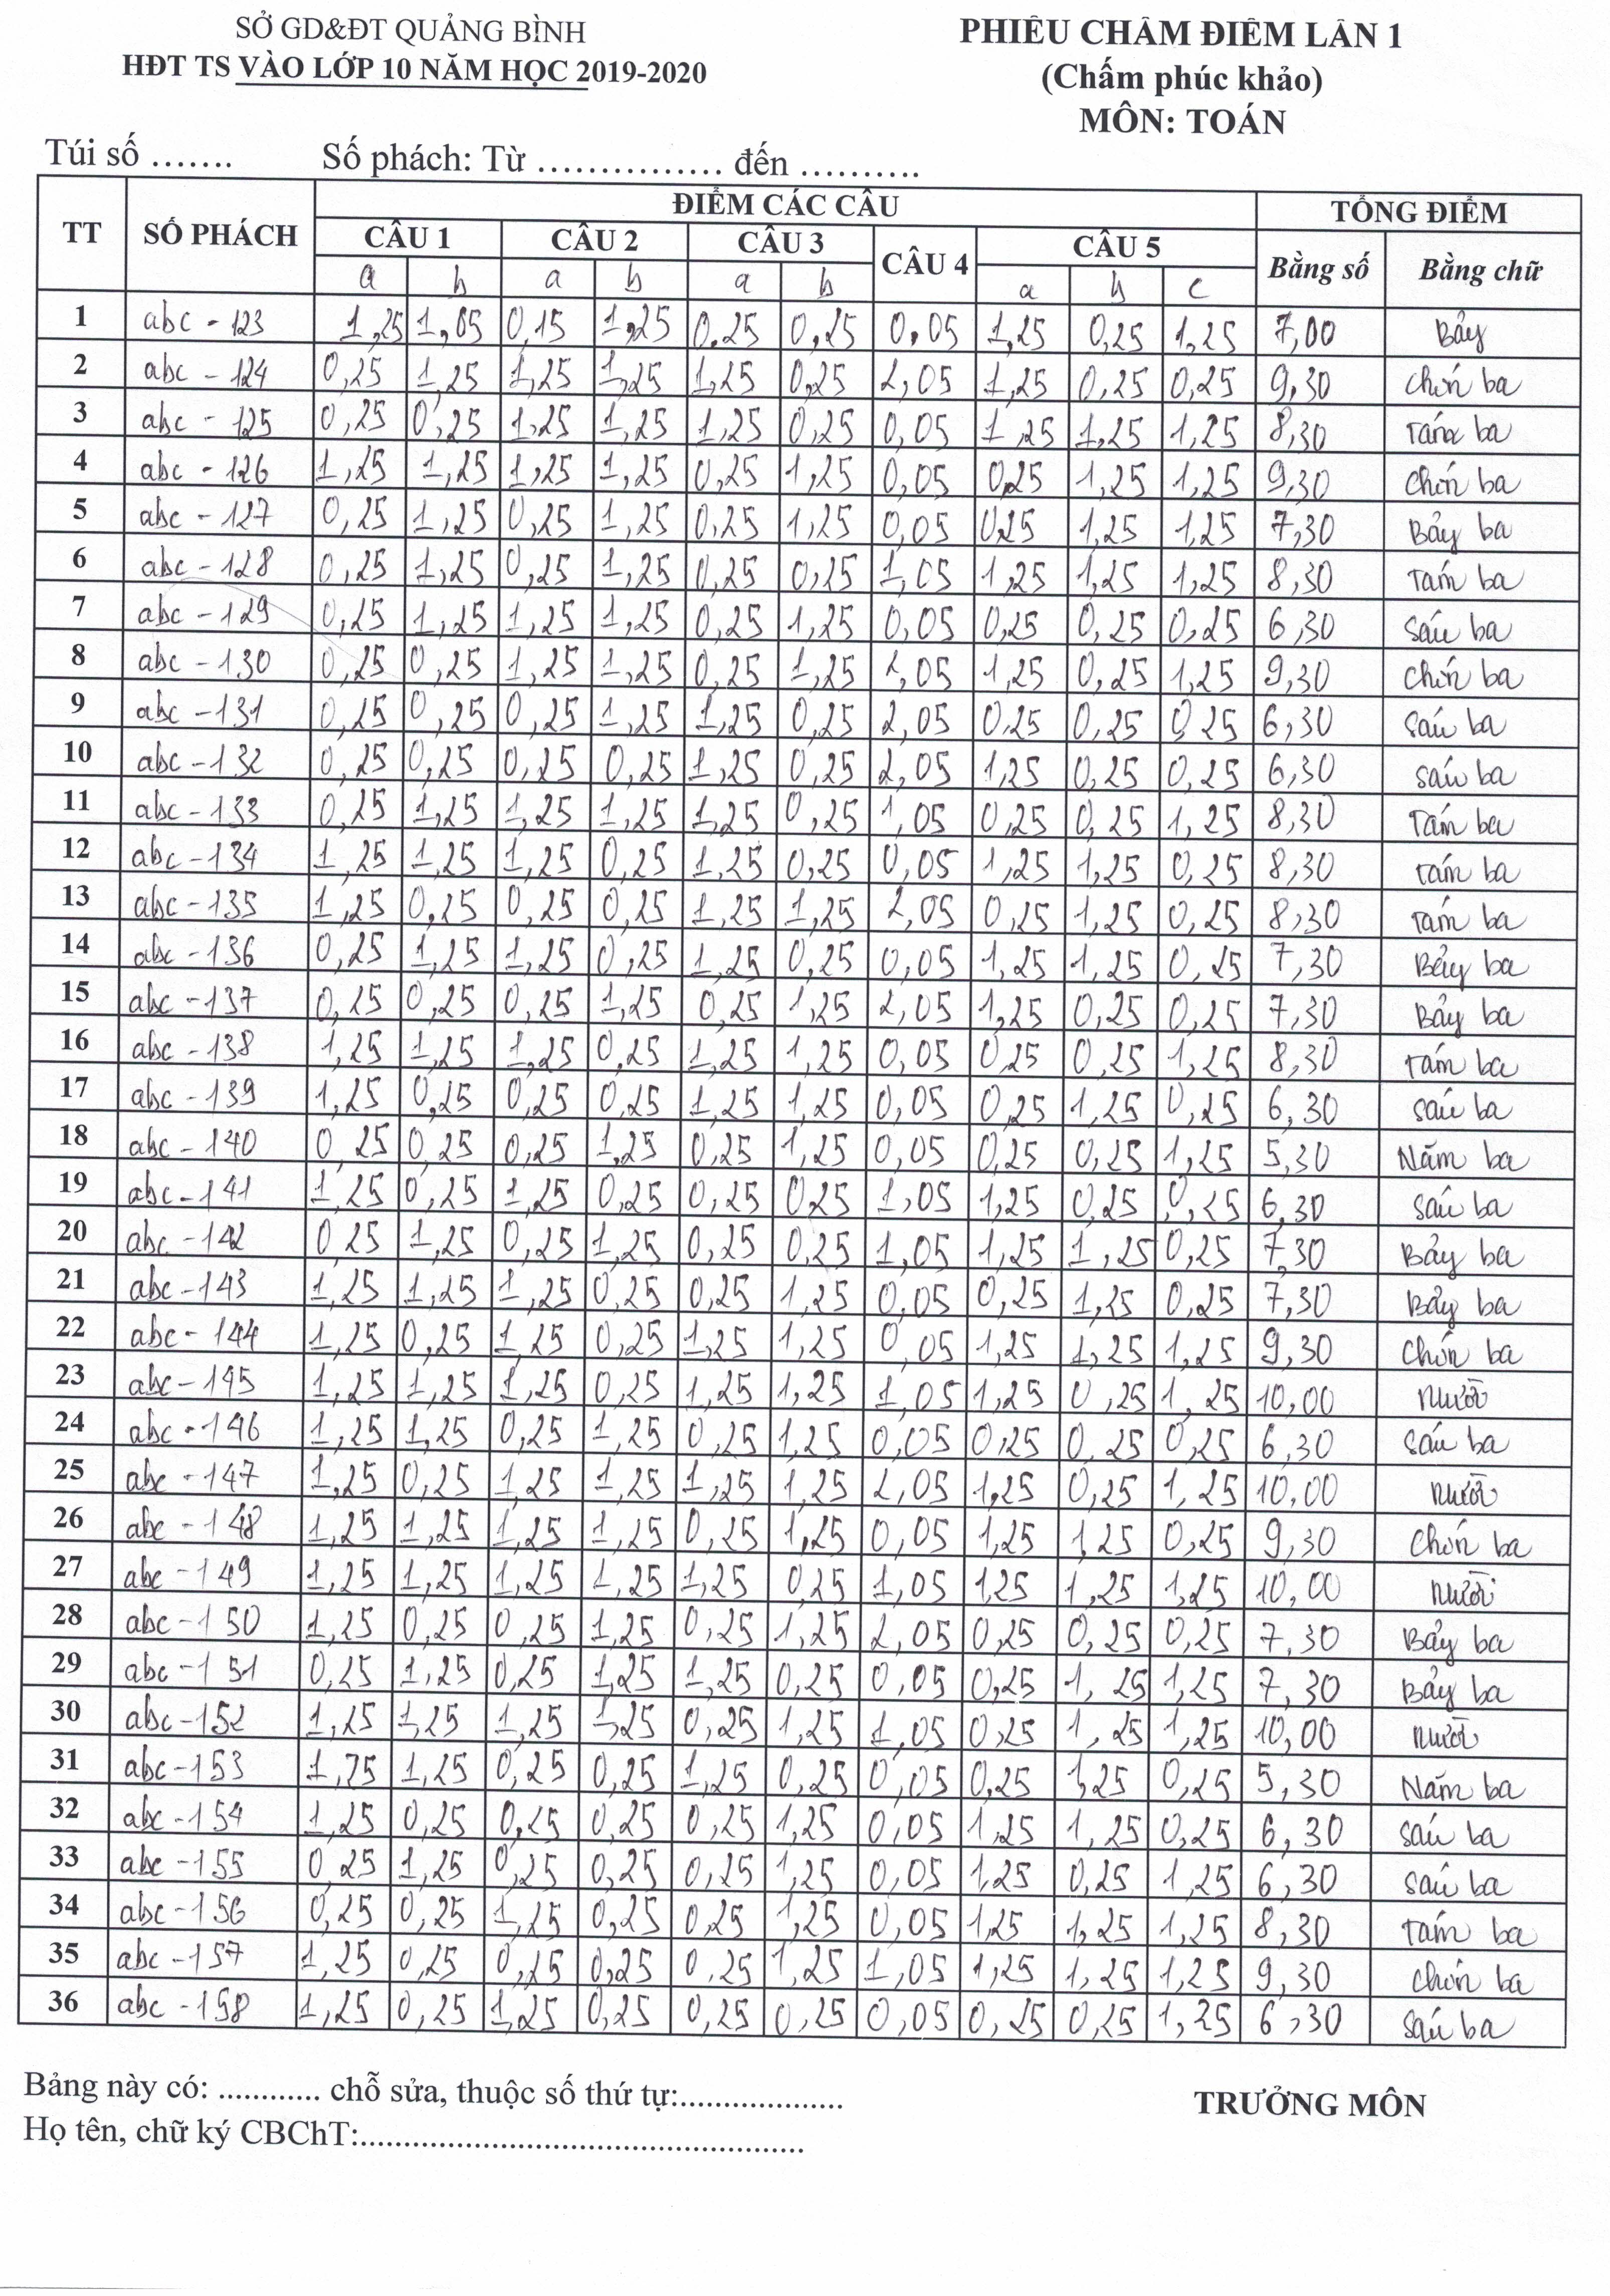 SỞ GD&ĐT QUẢNG BÌNH
HĐT TS VÀO LỚP 10 NĂM HỌC 2019-2020
PHIẾU CHẤM ĐIỂM LẦN 1
(Chấm phúc khảo)
MÔN: TOÁN
Túi số ....... Số phách: Từ ................ đến ..........
TT SỐ PHÁCH ĐIỂM CÁC CÂU TỔNG ĐIỂM
CÂU 1 CÂU 2 CÂU 3 CÂU 4 CÂU 5 Bằng số Bằng chữ
a b a b a b a b c
1 abc - 123 1,25 1,05 0,15 1,25 0,25 0,25 0,05 1,25 0,25 1,25 7,00 Bảy
2 abc - 124 0,25 1,25 1,25 1,25 1,25 0,25 2,05 1,25 0,25 0,25 9,30 Chín ba
3 abc - 125 0,25 0,25 1,25 1,25 1,25 0,25 0,05 1,25 1,25 1,25 8,30 Tám ba
4 abc - 126 1,25 1,25 1,25 1,25 0,25 1,25 0,05 0,25 1,25 1,25 9,30 Chín ba
5 abc - 127 0,25 1,25 0,25 1,25 0,25 1,25 0,05 0,25 1,25 1,25 7,30 Bảy ba
6 abc - 128 0,25 1,25 0,25 1,25 0,25 0,25 1,05 1,25 1,25 1,25 8,30 Tám ba
7 abc - 129 0,25 1,25 1,25 1,25 0,25 1,25 0,05 0,25 0,25 0,25 6,30 Sáu ba
8 abc - 130 0,25 0,25 1,25 1,25 0,25 1,25 2,05 1,25 0,25 1,25 9,30 Chín ba
9 abc - 131 0,25 0,25 0,25 1,25 1,25 0,25 2,05 0,25 0,25 0,25 6,30 Sáu ba
10 abc - 132 0,25 0,25 0,25 0,25 1,25 0,25 2,05 1,25 0,25 0,25 6,30 Sáu ba
11 abc - 133 0,25 1,25 1,25 1,25 1,25 0,25 1,05 0,25 0,25 1,25 8,30 Tám ba
12 abc - 134 1,25 1,25 1,25 0,25 1,25 0,25 0,05 1,25 1,25 0,25 8,30 Tám ba
13 abc - 135 1,25 0,25 0,25 0,25 1,25 1,25 2,05 0,25 1,25 0,25 8,30 Tám ba
14 abc - 136 0,25 1,25 1,25 0,25 1,25 0,25 0,05 1,25 1,25 0,25 7,30 Bảy ba
15 abc - 137 0,25 0,25 0,25 1,25 0,25 1,25 2,05 1,25 0,25 0,25 7,30 Bảy ba
16 abc - 138 1,25 1,25 1,25 0,25 1,25 1,25 0,05 0,25 0,25 1,25 8,30 Tám ba
17 abc - 139 1,25 0,25 0,25 0,25 1,25 1,25 0,05 0,25 1,25 0,25 6,30 Sáu ba
18 abc - 140 0 25 0,25 0,25 1,25 0,25 1,25 0,05 0,25 0,25 1,25 5,30 Năm ba
19 abc - 141 1,25 0,25 1,25 0,25 0,25 0,25 1,05 1,25 0,25 0,25 6,30 Sáu ba
20 abc - 142 0 25 1,25 0,25 1,25 0,25 0,25 1,05 1,25 1,25 0,25 7,30 Bảy ba
21 abc - 143 1,25 1,25 1,25 0,25 0,25 1,25 0,05 0,25 1,25 0,25 7,30 Bảy ba
22 abc - 144 1,25 0,25 1,25 0,25 1,25 1,25 0,05 1,25 1,25 1,25 9,30 Chín ba
23 abc - 145 1,25 1,25 1,25 0,25 1,25 1,25 1,05 1,25 0,25 1,25 10,00 Mười
24 abc - 146 1,25 1,25 0,25 1,25 0,25 1,25 0,05 0,25 0,25 0,25 6,30 Sáu ba
25 abc - 147 1,25 0,25 1,25 1,25 1,25 1,25 2,05 1,25 0,25 1,25 10,00 Mười
26 abc - 148 1,25 1,25 1,25 1,25 0,25 1,25 0,05 1,25 1,25 0,25 9,30 Chín ba
27 abc - 149 1,25 1,25 1,25 1,25 1,25 0,25 1,05 1,25 1,25 1,25 10,00 Mười
28 abc - 150 1,25 0,25 0,25 1,25 0,25 1,25 2,05 0,25 0,25 0,25 7,30 Bảy ba
29 abc - 151 0,25 1,25 0,25 1,25 1,25 0,25 0,05 0,25 1,25 1,25 7,30 Bảy ba
30 abc - 152 1,25 1,25 1,25 1,25 0,25 1,25 1,05 0,25 1,25 1,25 10,00 Mười
31 abc - 153 1,25 1,25 0,25 0,25 1,25 0,25 0,05 0,25 1,25 0,25 5,30 Năm ba
32 abc - 154 1,25 0,25 0,25 0,25 0,25 1,25 0,05 1,25 1,25 0,25 6,30 Sáu ba
33 abc - 155 0,25 1,25 0,25 0,25 0,25 1,25 0,05 1,25 0,25 1,25 6,30 Sáu ba
34 abc - 156 0,25 0,25 1,25 0,25 0,25 1,25 0,05 1,25 1,25 1,25 8,30 Tám ba
35 abc - 157 1,25 0,25 0,25 0,25 0,25 1,25 1,05 1,25 1,25 1,25 9,30 Chín ba
36 abc - 158 1,25 0,25 1,25 0,25 0,25 0,25 0,05 0,25 0,25 1,25 6,30 Sáu ba
Bảng này có: ............ chỗ sửa, thuộc số thứ tự:...................
TRƯỞNG MÔN
Họ tên, chữ ký CBChT:..................................................